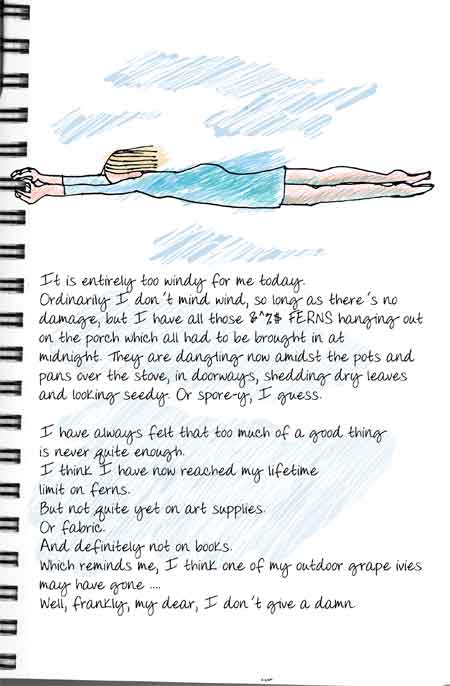 It is entirely too windy for me today.
Ordinarily I don't mind wind, so long as there's no
damage, but I have all those &^%$ FERNS hanging out
on the porch which all had to be brought in at
midnight. They are dangling now amidst the pots and
pans over the stove, in doorways, shedding dry leaves
and looking seedy. Or spore-y, I guess.
I have always felt that too much of a good thing
is never quite enough.
I think I have now reached my lifetime
limit on ferns.
But not quite yet on art supplies.
Or fabric.
And definitely not on books.
Which reminds me, I think one of my outdoor grape ivies
may have gone ....
Well, frankly, my dear, I don't give a damn